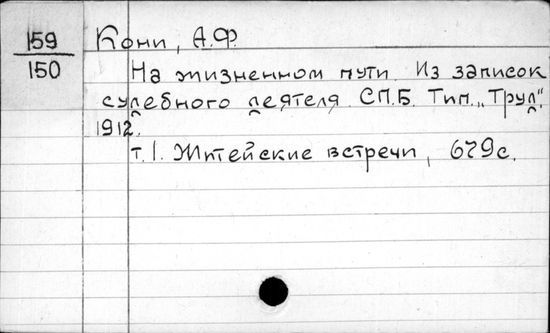 159
150
Кони, А.Ф.
На жизненном пути. Из записок
судебного деятеля. СП.Б. Тип. „Труд“.
1912.
т.1. Житейские встречи, 679с.